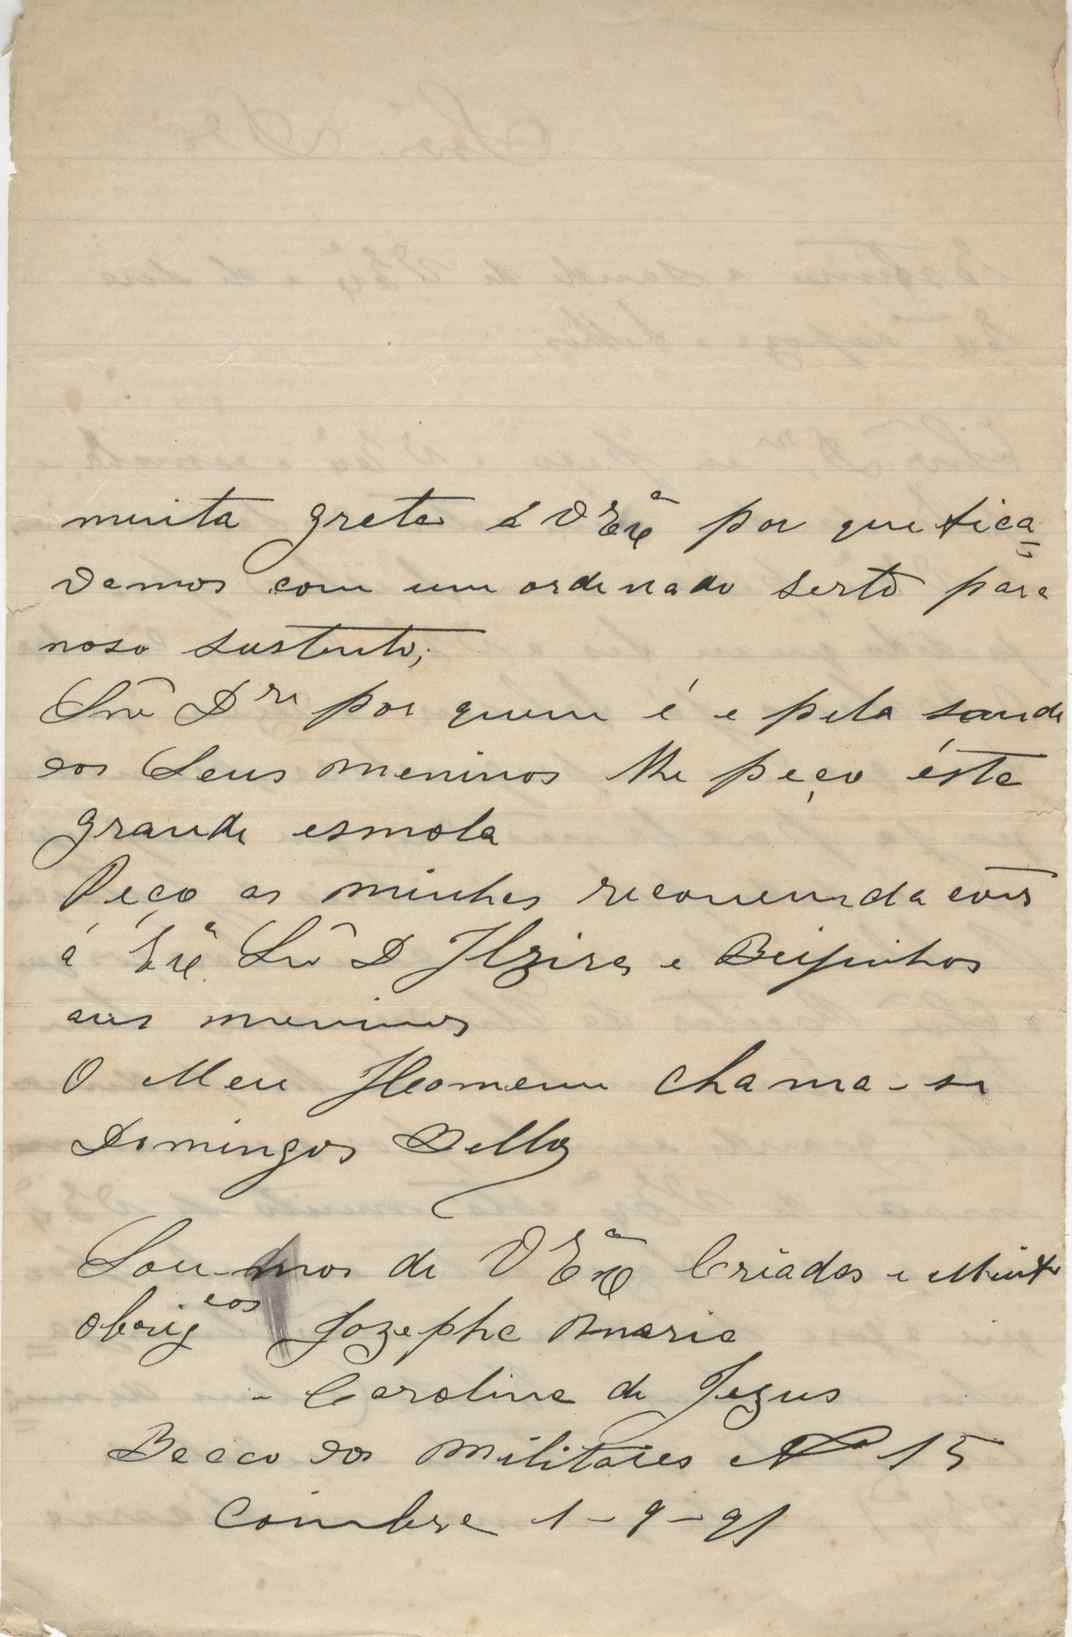 muita grata á V Exª por que fica
vamos com um ordenado serto para
noso sustento;
Snr Dr por quem é e pela saude
dos Seus meninos lhe peço ésta
grande esmola
Peço as minhas recomendacões
á Exª Srª D Alzira e Beijinhos
aos meninos
O Meu Homem chama-se
Domingos Bello
Sou mos de V Exª Criados e Muito
obrigdos Jozepha Maria
- Carolina de Jezus
Becco dos Militares Nº 15
Coimbra 1-9-91